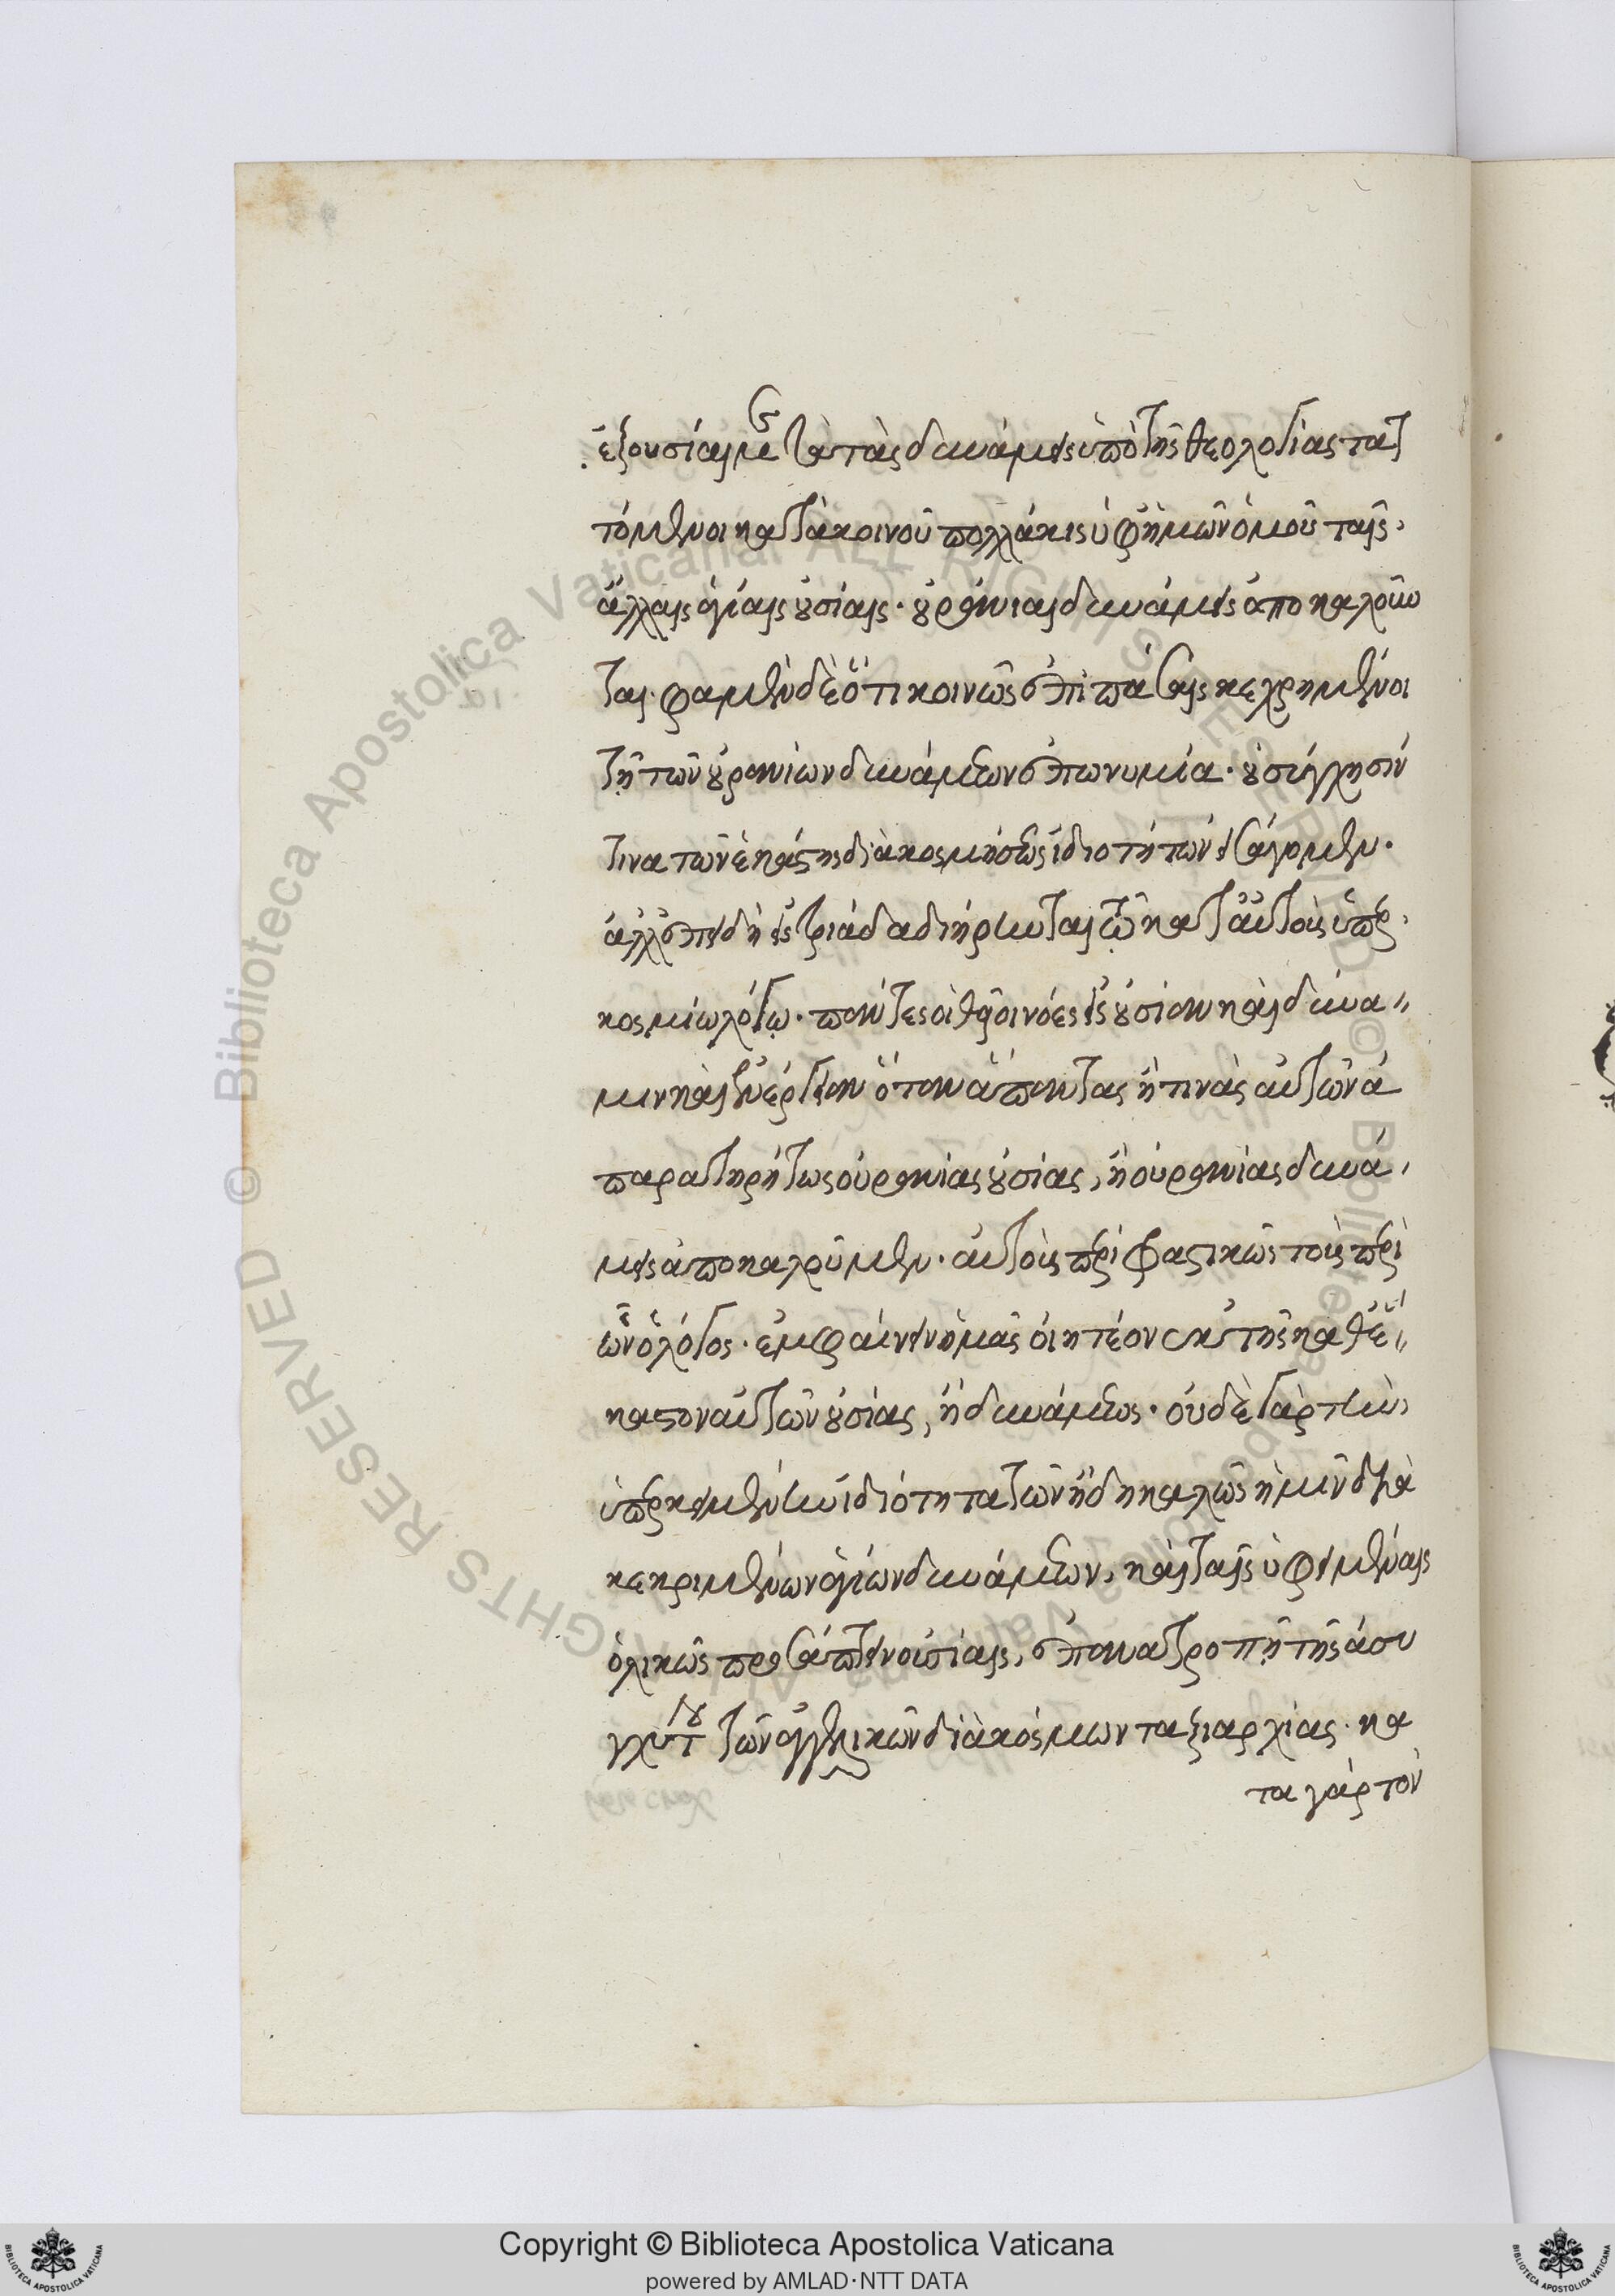 ἐξουσίαι μετὰ τὰς δυνάμεις ὑπὸ τῆς θεολογίας τατ
τόμενοι κατὰ κοινοῦ πολλάκις ὑφ' ἡμῶν ὁμοῦ ταῖς
ἄλλαις ἁγίαις οὐσίαις· οὐράνιαι δυνάμεις ἀποκαλοῦν
ται· φαμὲν δὲ ὅτι κοινῶς ἐπὶ πάσαις κεχρημένοι
τῇ τῶν οὐρανίων δυνάμεων ἐπωνυμία· οὐ σύγχησίν
τινα τῶν ἑκάστης διακοσμήσεως ἰδιοτήτων εἰσάγομεν·
ἀλλ' ἐπειδὴ εἰς τριάδα διήρηνται τῷ κατ' αὐτοὺς ὑπερ
κοσμίῳ λόγῳ· πάντες οἱ θεῖοι νόες εἰς οὐσίαν καὶ δύνα
μιν καὶ ἐνέργειαν ὅταν ἅπαντας ἤ τινὰς αὐτῶν ἀ
παρατηρήτως οὐρανίας οὐσίας, ἢ οὐρανίας δυνά
μεις ἀποκαλοῦμεν· αὐτοὺς περιφραστικῶς τοὺς περὶ
ὧν ὁ λόγος· ἐμφαίνειν ἡμᾶς οἰητέον ἐκ τῆς καθ' ἕ
καστον αὐτῶν οὐσίας, ἢ δυνάμεως· οὐδὲ γὰρ τὴν
ὑπερκειμένην ἰδιότητα τῶν ἤδη καλῶς ἡμῖν δια
κεκριμένων ἁγίων δυνάμεων, καὶ ταῖς ὑφειμέναις
ὁλικῶς προσάπτειν οὐσίαις, ἐπ' ἀνατροπῇ τῆς ἀσυ
γχύτου τῶν ἀγγελικῶν διακόσμων ταξιαρχίας· κα
τα γὰρ τὸν
Copyright © Biblioteca Apostolica Vaticana
powered by AMLAD·NTT DATA